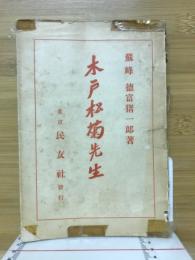 蘇峰 德富猪一郎著
木戸松菊先生
東京 民友社 發行